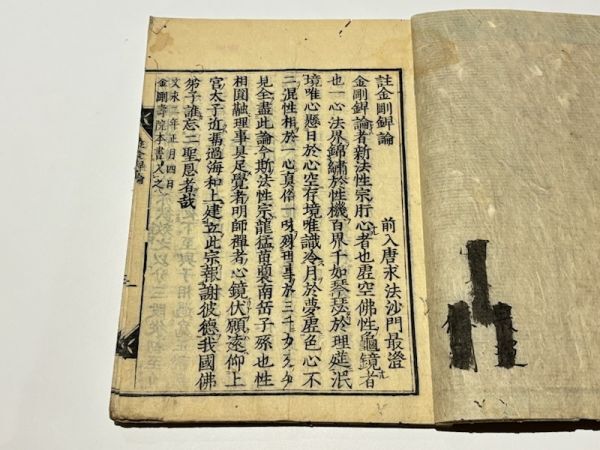 註金剛錍論
前入唐求法沙門最澄
金剛錍論者新法性宗肝心者也虛空佛性龜鏡者
也一心法界錦繡於性機百界千如琴瑟於理莚泯
境唯心懸日於心空存境唯識冷月於夢虛色心不
二混性相於一心眞俗一味殘理事於三千
見全盡此論今斯法性宗龍猛苗裔南岳子孫也性
相圓融理事具足覺者明師禪者心鏡伏願遠仰上
宮太子近 過海和上建立此宗報謝彼德我國佛
弟子誰忘二聖恩者哉
文永二年正月四日
金剛壽院本書入之